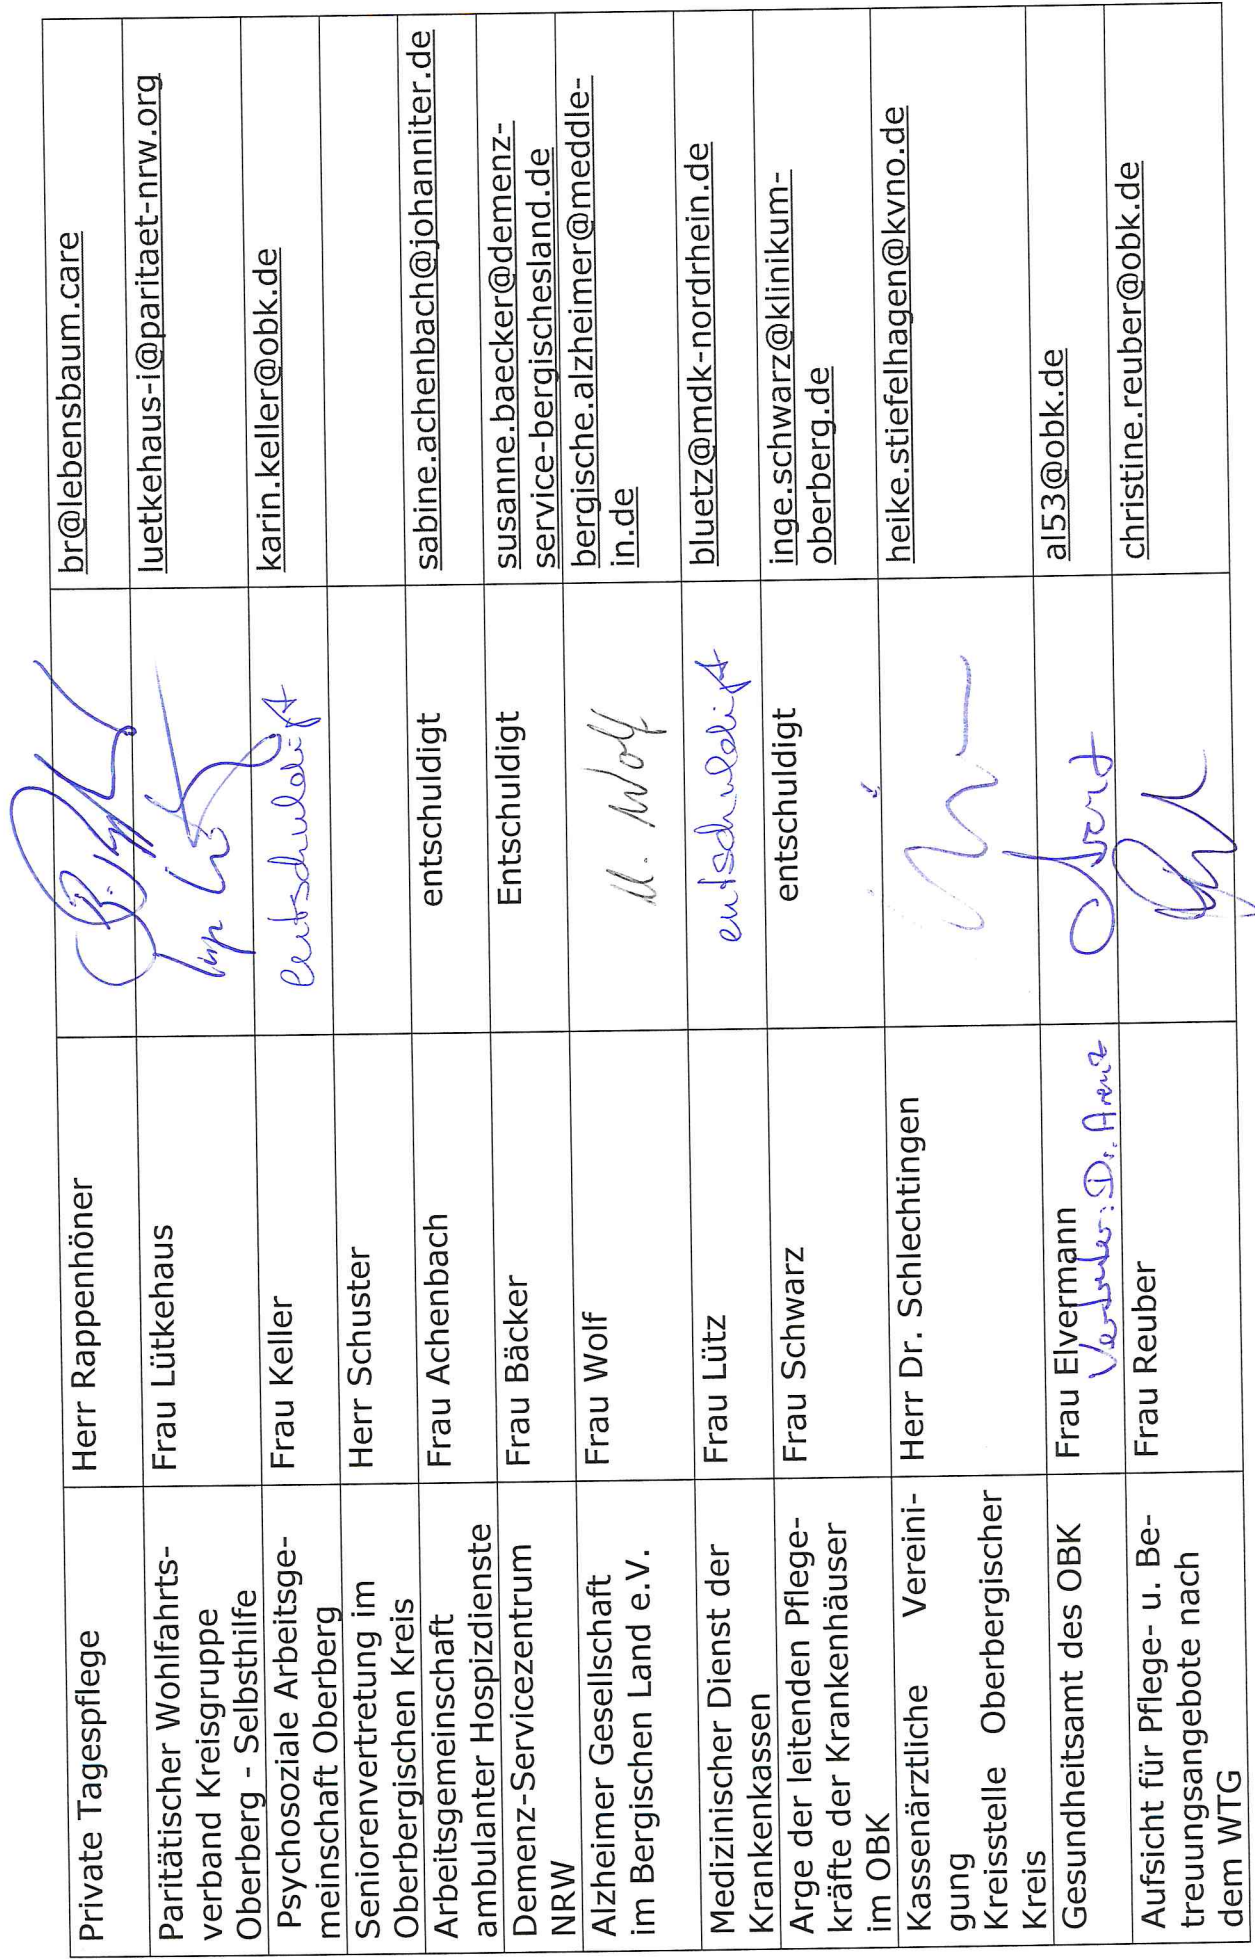 Private Tagespflege
Herr Rappenhöner
br@lebensbaum.care
Paritätischer Wohlfahrts-
verband Kreisgruppe
Oberberg - Selbsthilfe
Frau Lütkehaus
luetkehaus-i@paritaet-nrw.org
Psychosoziale Arbeitsge-
meinschaft Oberberg
Frau Keller
entschuldigt
karin.keller@obk.de
Seniorenvertretung im
Oberbergischen Kreis
Herr Schuster
Arbeitsgemeinschaft
ambulanter Hospizdienste
Frau Achenbach
entschuldigt
sabine.achenbach@johanniter.de
Demenz-Servicezentrum
NRW
Frau Bäcker
Entschuldigt
susanne.baecker@demenz-
service-bergischesland.de
Alzheimer Gesellschaft
im Bergischen Land e.V.
Frau Wolf
U. Wolf
bergische.alzheimer@meddle-
in.de
Medizinischer Dienst der
Krankenkassen
Frau Lütz
entschuldigt
bluetz@mdk-nordrhein.de
Arge der leitenden Pflege-
kräfte der Krankenhäuser
im OBK
Frau Schwarz
entschuldigt
inge.schwarz@klinikum-
oberberg.de
Kassenärztliche Vereini-
gung
Kreisstelle Oberbergischer
Kreis
Herr Dr. Schlechtingen
heike.stiefelhagen@kvno.de
Gesundheitsamt des OBK
Frau Elvermann
Vertreter: Dr. Arenz
al53@obk.de
Aufsicht für Pflege- u. Be-
treuungsangebote nach
dem WTG
Frau Reuber
christine.reuber@obk.de